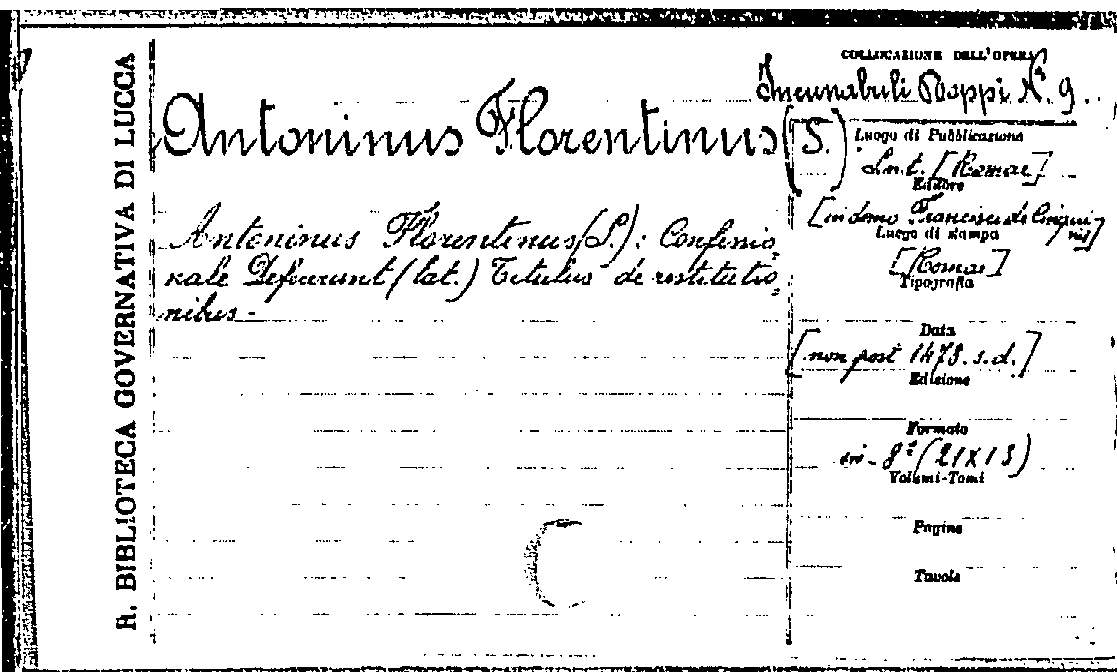 R. BIBLIOTECA GOVERNATIVA DI LUCCA
COLLOCAZIONE DELL'OPERA
Incunabuli Poppi N.º 9.
Antoninus Florentinus (S.)
Antoninus Florentinus (S.): Confessio,
nale Defecerunt (lat.) Titulus de restitutio,
nibus-
Luogo di Pubblicazione
S.n.t. [Romae]
Editore
[in domo Francisci de Cinqui
nis]
Luogo di stampa
[Romae]
Tipografia
Data
[non post 1478. s.d.]
Edizione
Formato
in-8º (21X13)
Volumi-Tomi
Pagine
Tavole